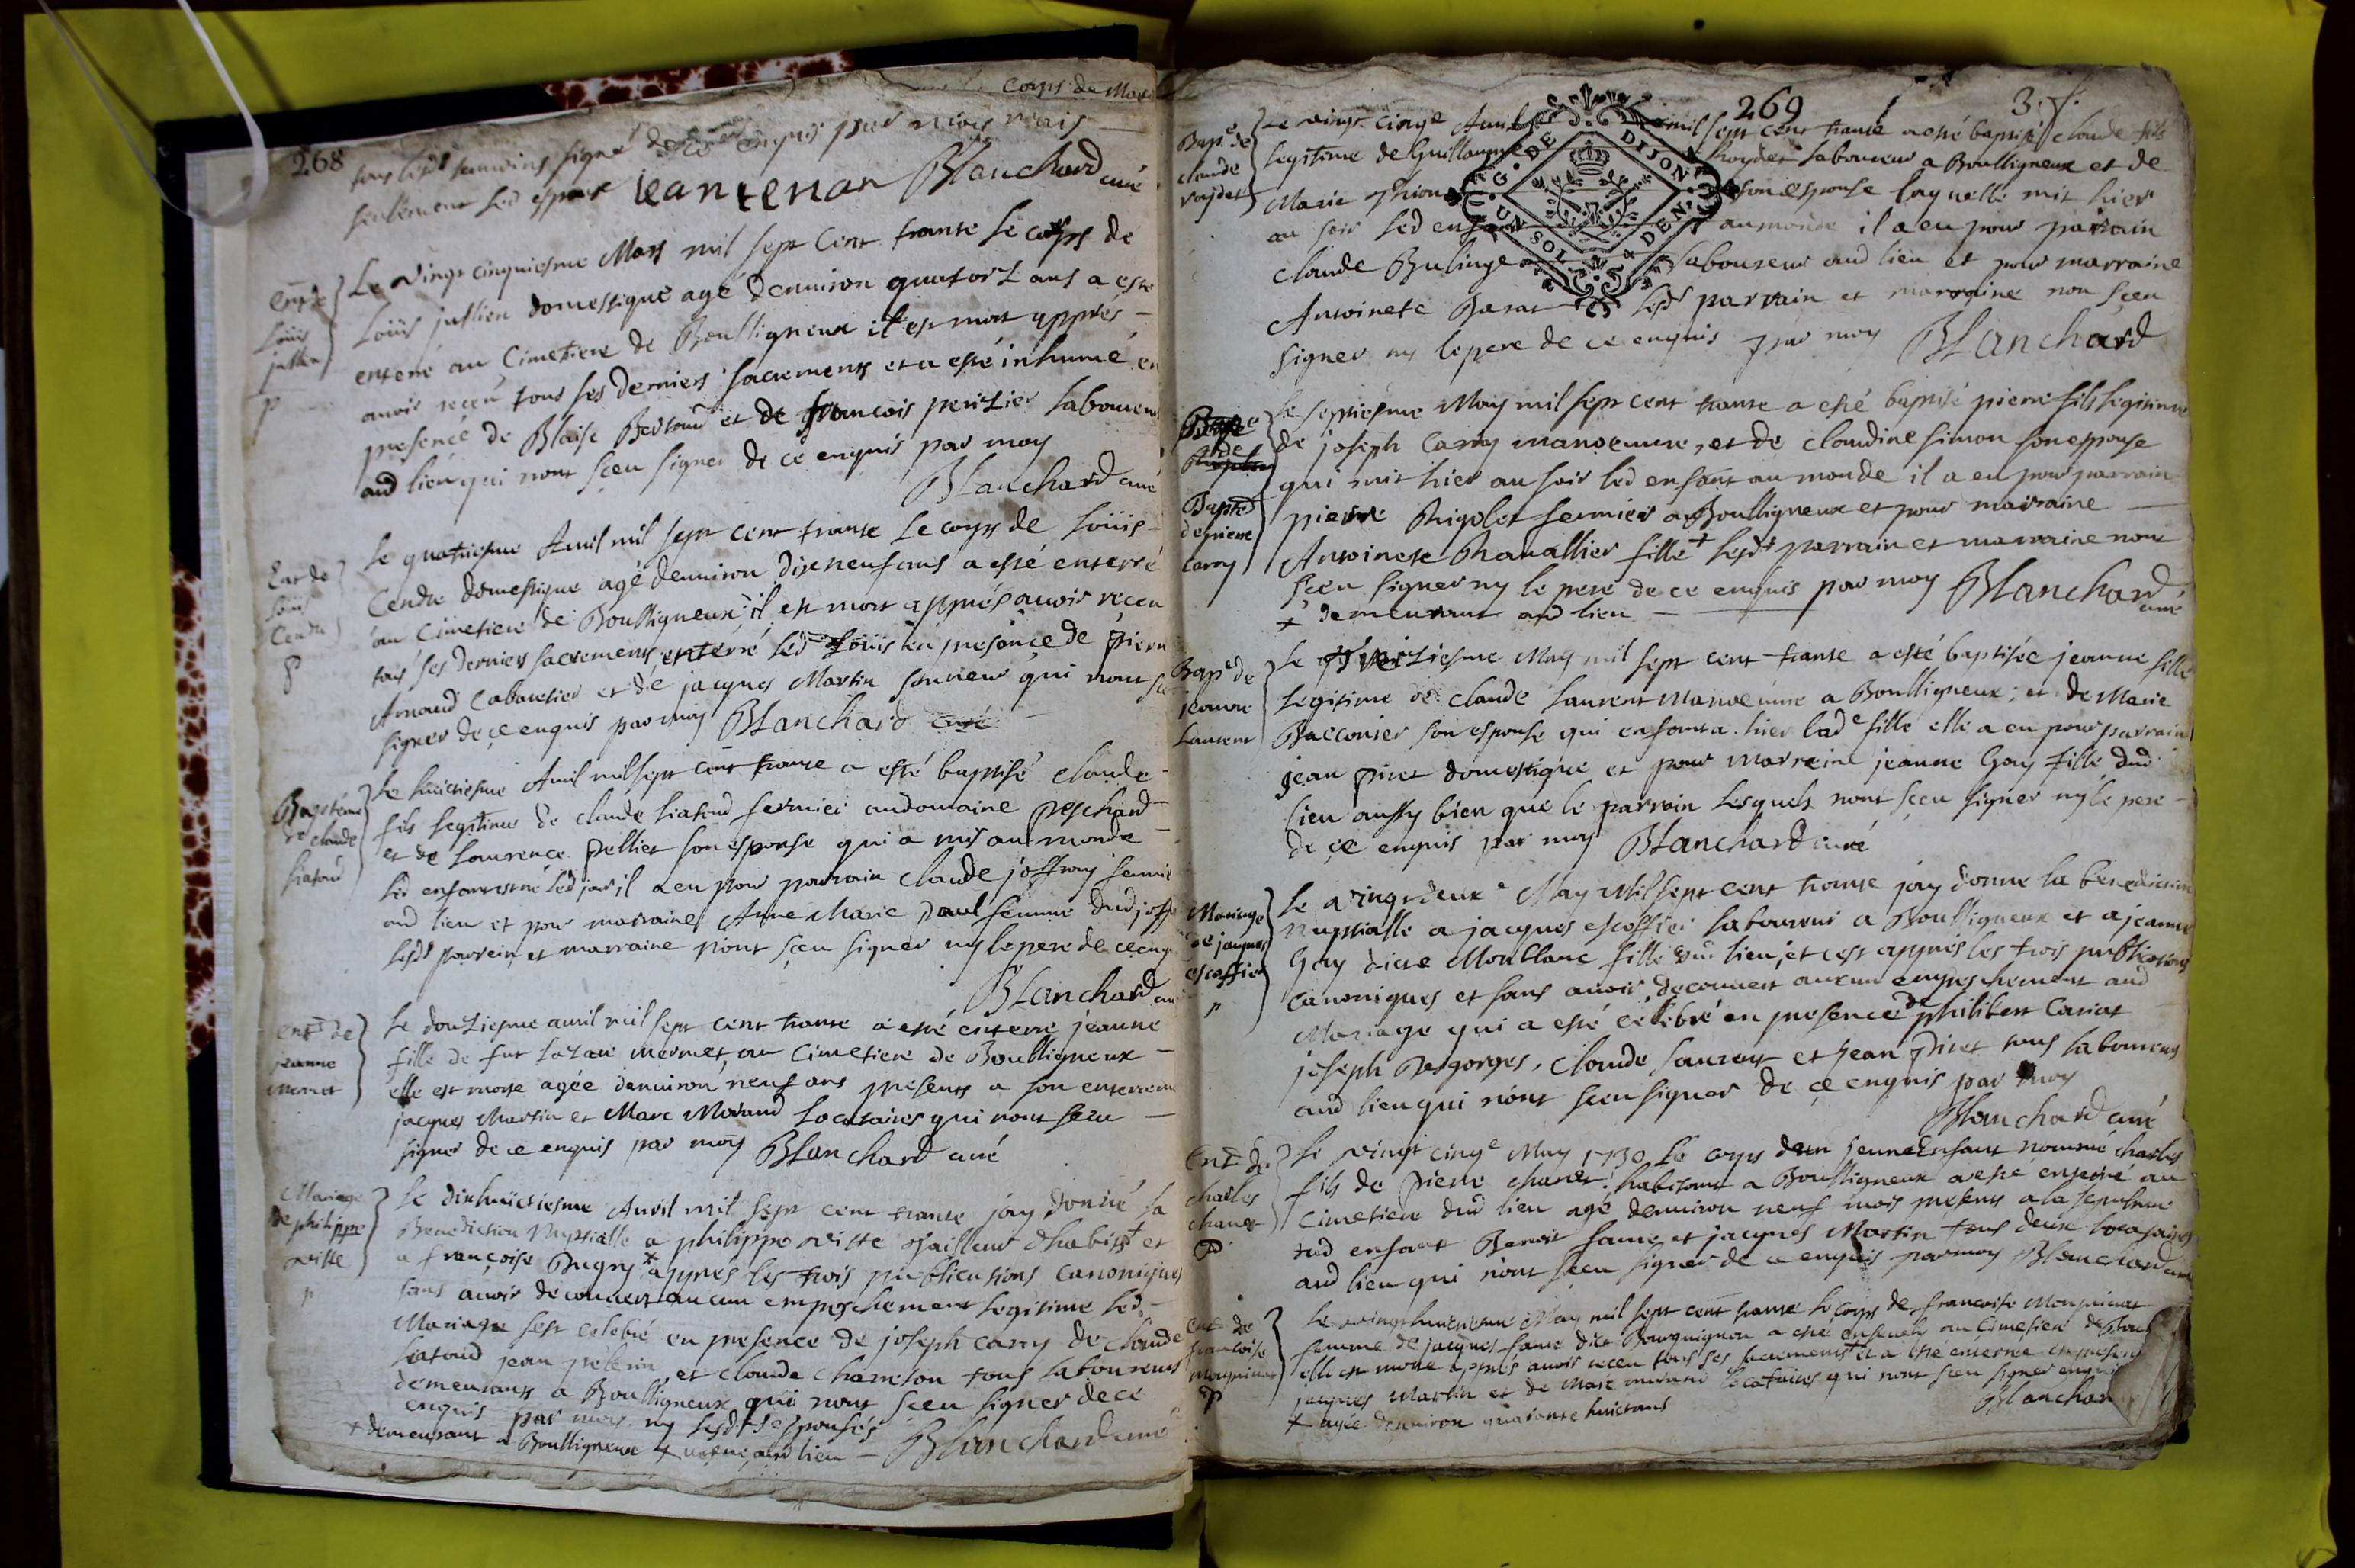 268
Corps de
tous lesd temoins signé de ce enquis par mois mais
seulement led espoux jean tenan Blanchard curé
Louis
jullien
p
Le vingt cinquiesme Mars mil sept cent trante le corps de
Loüis jullien domestique agé denuiron quatorz ans a esté
enterré au Cimetiere de Boulligneux il est mort apprés
auoir receu tous ses derniers sacrements et a esté inhumé en
presence de Blaise et de francois perizier laboureurs
aud lieu qui nont sçeu signer de ce enquis par moy
Blanchard curé
Ent de
Loüis
Cendre
Le quatriesme Auril mil sept cent trante le corps de Loüis
Cendre domestique agé denuiron dixneuf ans a esté enterré
au Cimetiere de Boulligneux il est mort apprés auoir receu
tous ses derniers sacrements enterré led Loüis en presence de pierre
Arnaud Cabaretier et de jacques Martin sonneur qui nont
signer de ce enquis par moy Blanchard curé
Baptême
de claude
liatoud
Le huictiesme Auril mil sept cent trante a esté baptisé claude
fils legitime de claude liatoud fermier au domaine peschard
et de Laurence pellier son esponse qui a mis au monde
led enfant led jour il a eu pour parrain claude joffray
aud lieu et pour marraine Anne Marie paul femme dud
lesd parrain et marraine nont sçeu signer ny le pere de ce
Blanchard
Ent de
jeanne
mermet
Le douziesme auril mil sept cent trante a esté enterré jeanne
fille de fut lazare mermet au Cimetiere de Boulligneux
elle est morte agée denuiron neuf ans presents a son enterrement
jacques Martin et Marc Morand Locataires qui nont sceu
signer de ce enquis par moy Blanchard curé
Mariage
de philippe
vitte
p
Le dixhuictiesme Auril mil sept cent trante jay donné la
Benediction Nuptialle a philippe vitte et
a françoise Bugny apprés les trois publications canoniques
sans auoir decouuert aucun empeschement legitime led
Mariage sest celebré en presence de joseph carry de claude
liatoud jean pelerin et claude charreton tous laboureurs
demeurants a Boulligneux qui nont sceu signer de ce
enquis par moy ny lesd espousés
+ demeurant a Boulligneux aud lieu Blanchard curé
269
3
Bap.e de
claude
roydet
Le vingt cinqe Auril mil sept cent trante a esté baptisé claude fils
legitime de Guillaume roydet laboureur a Boulligneux et de
Marie son esponse laquelle mit hier
au soir led enfant au monde il a eu pour parrain
claude Bulinge laboureur aud lieu et pour marraine
Antoinete lesd parrain et marraine non sçeu
signer ny le pere de ce enquis par moy Blanchard
G. DE DIJON
UN SOL 4 DEN.
Bapte
de pierre
Carry
Le septiesme May mil sept cent trante a esté baptisé pierre fils legitime
de joseph Carry manoeuure, et de claudine simon son esponse
qui mit hier au soir led enfant au monde il a eu pour parrain
pierre Rigolet fermier a Boulligneux et pour marraine
Antoinete fille + lesd parrain et marraine nont
sçeu signer ny le pere de ce enquis par moy Blanchard
curé
+ demeurant aud lieu
Bap.e de
jeanne
Laurent
Le May mil sept cent trante a esté baptisée jeanne fille
legitime de claude Laurent manoeuure a Boulligneux, et de Marie
son esponse qui enfanta hier lade fille elle a eu pour parrain
jean piret domestique et pour marreine jeanne Gay fille dud
lieu aussy bien que le parrain lesquels nont sçeu signer ny le pere
de çe enquis par moy Blanchard curé
Mariage
de jacques
escoffier
p
Le vingt deuxe May Mil sept cent trante jay donné la benediction
nuptialle a jacques escoffier laboureur a Boulligneux et a jeanne
Gay dicte Moublanc fille dud lieu, et cest apprés les trois publications
canoniques et sans auoir decouuert aucun empeschement aud
Mariage qui a esté celebré en presence de philibert Cariat
joseph Desgorges, claude Laurent et jean piret tous laboureurs
aud lieu qui nont sceu signer de ce enquis par moy
Blanchard curé
Ent de
charles
chanet
Le vingt cinqe May 1730 Le corps dun jeune Enfant nommé charles
fils de pierre chanet habitant a Boulligneux a este enterré au
cimetiere dud lieu agé denuiron neuf mois presents a la sepulture
dud enfant Benoit et jacques Martin tous deux locataires
aud lieu qui nont sceu signer de ce enquis par moy Blanchard curé
Ent de
françoise
p
Le vingthuictiesme May mil sept cent trante le corps de francoise
femme de jacques dict Bourguignon a esté enseuely au Cimetiere de
elle est morte apprés auoir receu tous ses sacrements et a esté enterrée en presence
jacques Martin et de Marc morand locataires qui nont sceu signer enquis
Blanchard
+ agée denuiron quarante huict ans